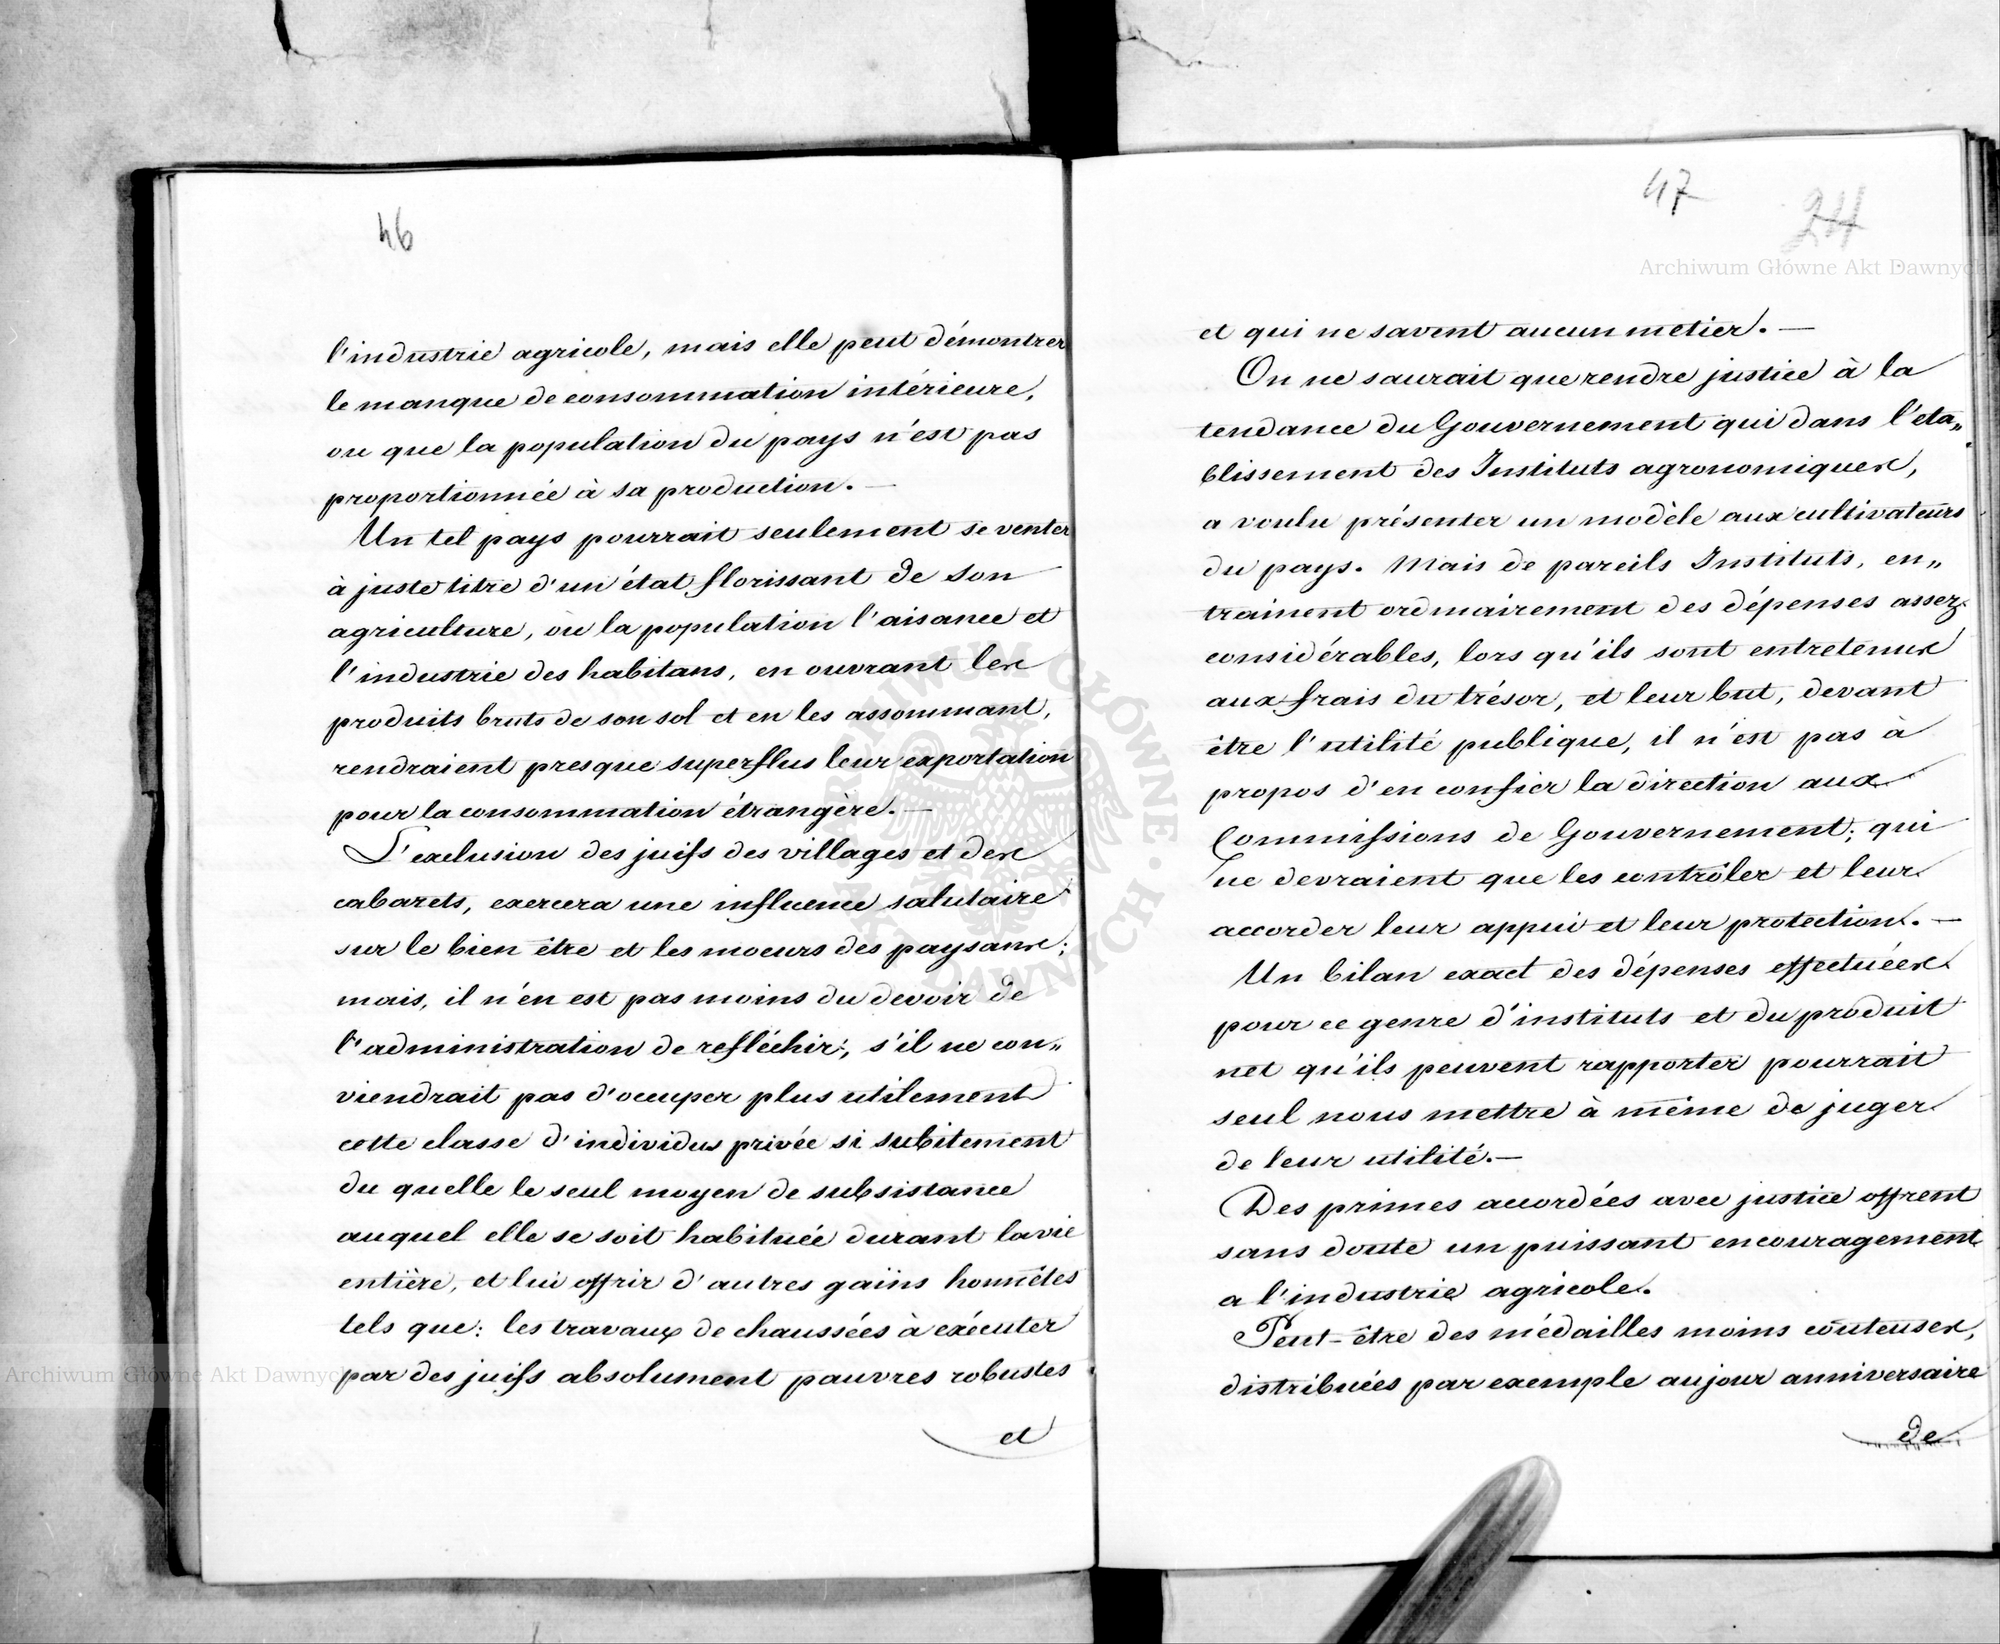 46
l'industrie agricole, mais elle peut démontrer
le manque de consommation intérieure,
ou que la population du pays n'est pas
proportionnée à sa production. —
Un tel pays pourrait seulement se venter
à juste titre d'un état florissant de son
agriculture, où la population l'aisance et
l'industrie des habitans, en ouvrant les
produits bruts de son sol et en les assommant,
rendraient presque superflus leur exportation
pour la consommation étrangère. —
L'exclusion des juifs des villages et des
cabarets, exercera une influence salutaire
sur le bien être et les moeurs des paysans;
mais, il n'en est pas moins du devoir de
l'administration de refléchir, s'il ne con„
viendrait pas d'occuper plus utilement
cette classe d'individus privée si subitement
du quelle le seul moyen de subsistance
auquel elle se soit habituée durant la vie
entière, et lui offrir d'autres gaïns honnêtes
tels que: les travaux de chaussées à exécuter
par des juifs absolument pauvres robustes
et
47
24
et qui ne savent aucun metier. —
On ne saurait que rendre justice à la
tendance du Gouvernement qui dans l'éta„
blissement des Instituts agronomiques,
a voulu présenter un modèle aux cultivateurs
du pays. Mais de pareils Instituts, en„
trainent ordinairement des dépenses assez
considérables, lors qu'ils sont entretenus
aux frais du trésor, et leur but, devant
être l'utilité publique, il n'est pas à
propos d'en confier la direction aux
Commissions de Gouvernement; qui
ne devraient que les contrôler et leur
accorder leur appui et leur protection. —
Un bilan exact des dépenses effectuées
pour ce genre d'instituts et du produit
net qu'ils peuvent rapporter pourrait
seul nous mettre à même de juger
de leur utilité. —
Des primes accordées avec justice offrent
sans doute un puissant encouragement
a l'industrie agricole.
Peut-être des médailles moins coûteuses,
distribuées par exemple au jour anniversaire
de
Archiwum Główne Akt Dawnych
Archiwum Główne Akt Dawnych
ARCHIWUM GŁÓWNE AKT DAWNYCH